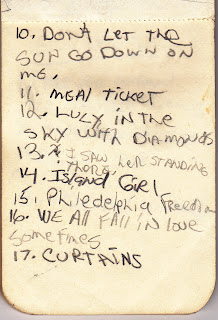 10. DON'T LET THE
SUN GO DOWN ON
ME.
11. MEAL TICKET
12. LUCY IN THE
SKY WITH DIAMONDS
13. I SAW HER STANDING
THERE
14. Island Girl
15. Philadelphia Freedom
16. WE All FAll iN love
Sometimes
17. CURTAINS